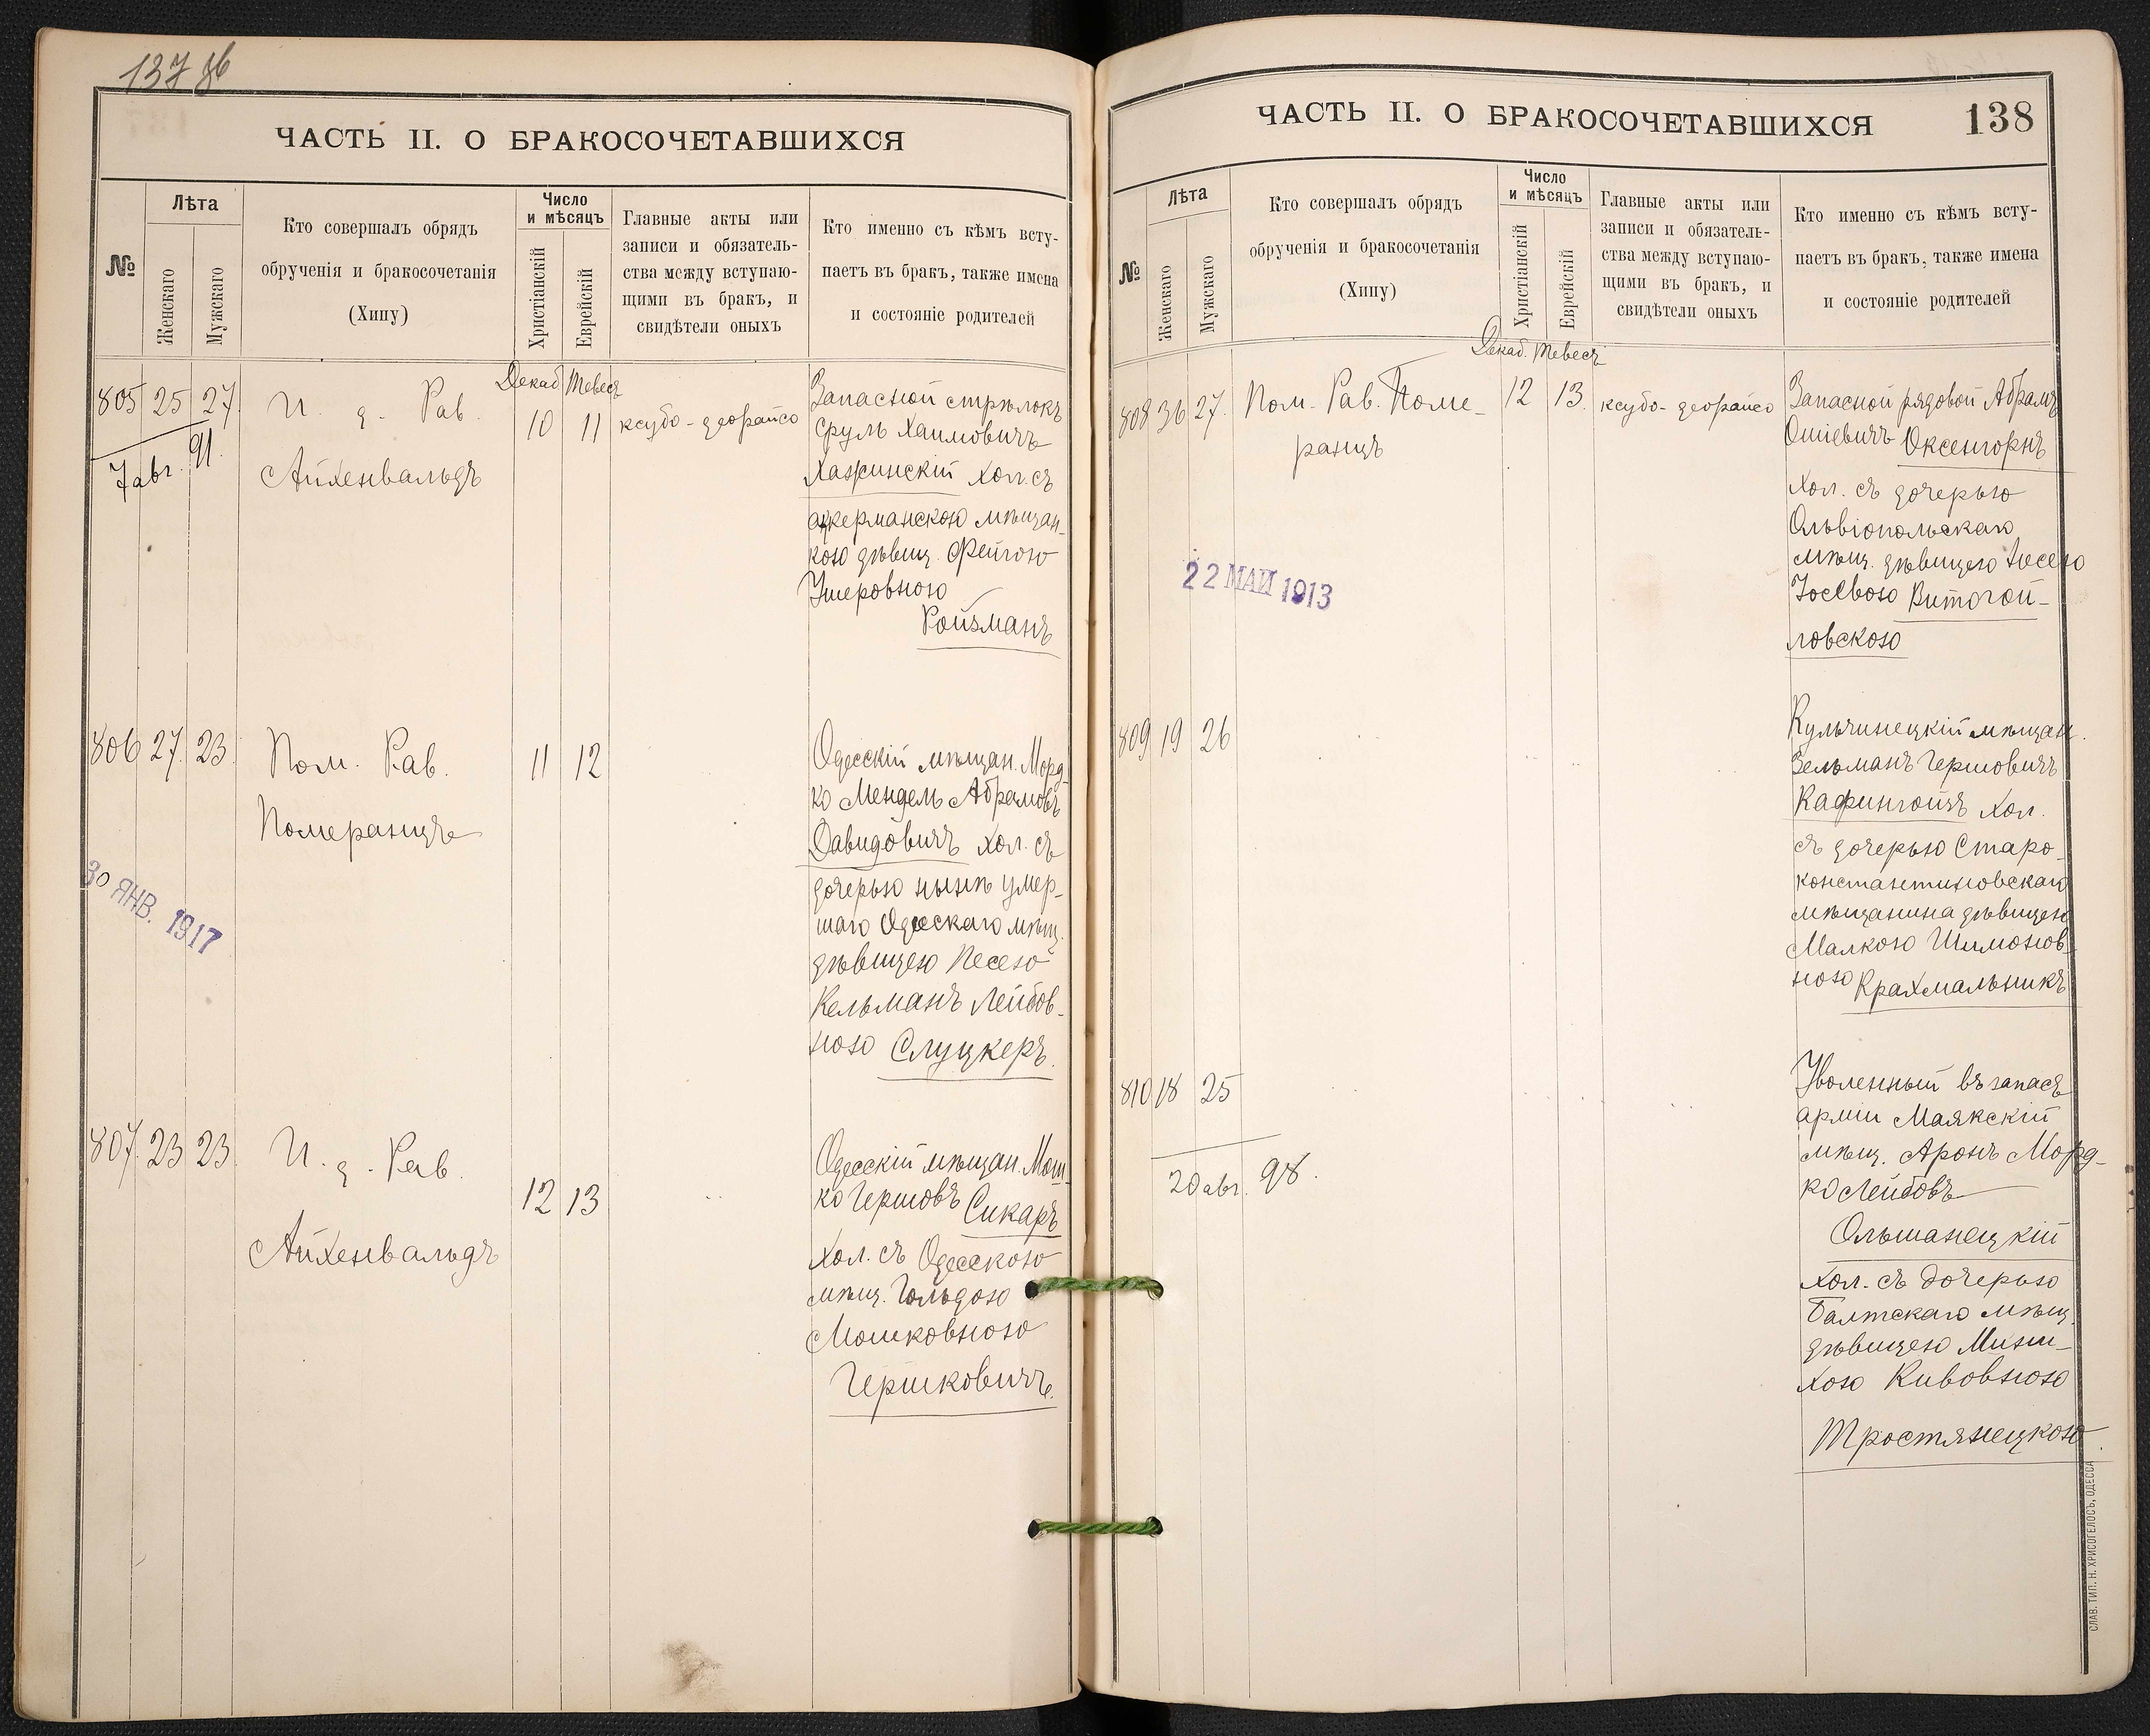 137 об
ЧАСТЬ II. О БРАКОСОЧЕТАВШИХСЯ
№
Лѣта
Женскаго
Мужскаго
Кто совершалъ обрядъ
обрученія и бракосочетанія
(Хипу)
Число
и мѣсяцъ
Христіанскій
Еврейскій
Главные акты или
записи и обязатель-
ства между вступаю-
щими въ бракъ, и
свидѣтели оныхъ
Кто именно съ кѣмъ всту-
паетъ въ бракъ, также имена
и состояніе родителей
Декаб Тевесъ
805 25 27.
7 авг. 91.
И. д. Рав.
Айхенвальдъ
10 11
ксубо-деорайсо
Запасной стрѣлокъ
Сруль Хаимовичъ
Хажинскій хол. съ
аккерманскою мѣщан-
кою дѣвиц. Фейгою
Ушеровною
Ройзманъ
806 27. 23.
Пом. Рав.
Померанцъ
11 12
30 ЯНВ. 1917
Одесскій мѣщан. Морд-
ко Мендель Абрамовъ
Давидовичъ хол. съ
дочерью нынѣ умер-
шаго Одесскаго мѣщ.
дѣвицею Песею
Кельманъ Лейбов-
ною Слуцкеръ.
807. 23 23.
И. д. Рав.
Айхенвальдъ
12 13
Одесскій мѣщан. Мош-
ко Гершовъ Сикаръ
хол. съ Одесскою
мѣщ. Гольдою
Мошковною
Гершковичъ.
ЧАСТЬ II. О БРАКОСОЧЕТАВШИХСЯ
138
№
Лѣта
Женскаго
Мужскаго
Кто совершалъ обрядъ
обрученія и бракосочетанія
(Хипу)
Число
и мѣсяцъ
Христіанскій
Еврейскій
Главные акты или
записи и обязатель-
ства между вступаю-
щими въ бракъ, и
свидѣтели оныхъ
Кто именно съ кѣмъ всту-
паетъ въ бракъ, также имена
и состояніе родителей
Декаб. Тевесъ
808 36 27.
Пом. Рав. Поме-
ранцъ
12 13.
ксубо-деорайсо
22 МАЙ 1913
Запасной рядовой Абрамъ
Ошіевичъ Оксенгорнъ
хол. съ дочерью
Ольвіопольскаго
мѣщ. дѣвицею
Витогой-
ловскою
809 19 26
Кульчинецкій мѣщан.
Зельманъ Гершовичъ
Кафингойзъ хол.
съ дочерью Старо-
константиновскаго
мѣщанина дѣвицею
Малкою Шимонов-
ною Крахмальникъ
810 18 25
20 авг. 98.
Уволенный въ запасъ
арміи Маякскій
мѣщ. Аронъ Морд-
ко Лейбовъ
Ольшанецкій
хол. съ дочерью
Балтскаго мѣщ.
дѣвицею Мини-
хою Кивовною
Тростянецкою
СЛАВ. ТИП. Н. ХРИСОГЕЛОСЪ, ОДЕССА